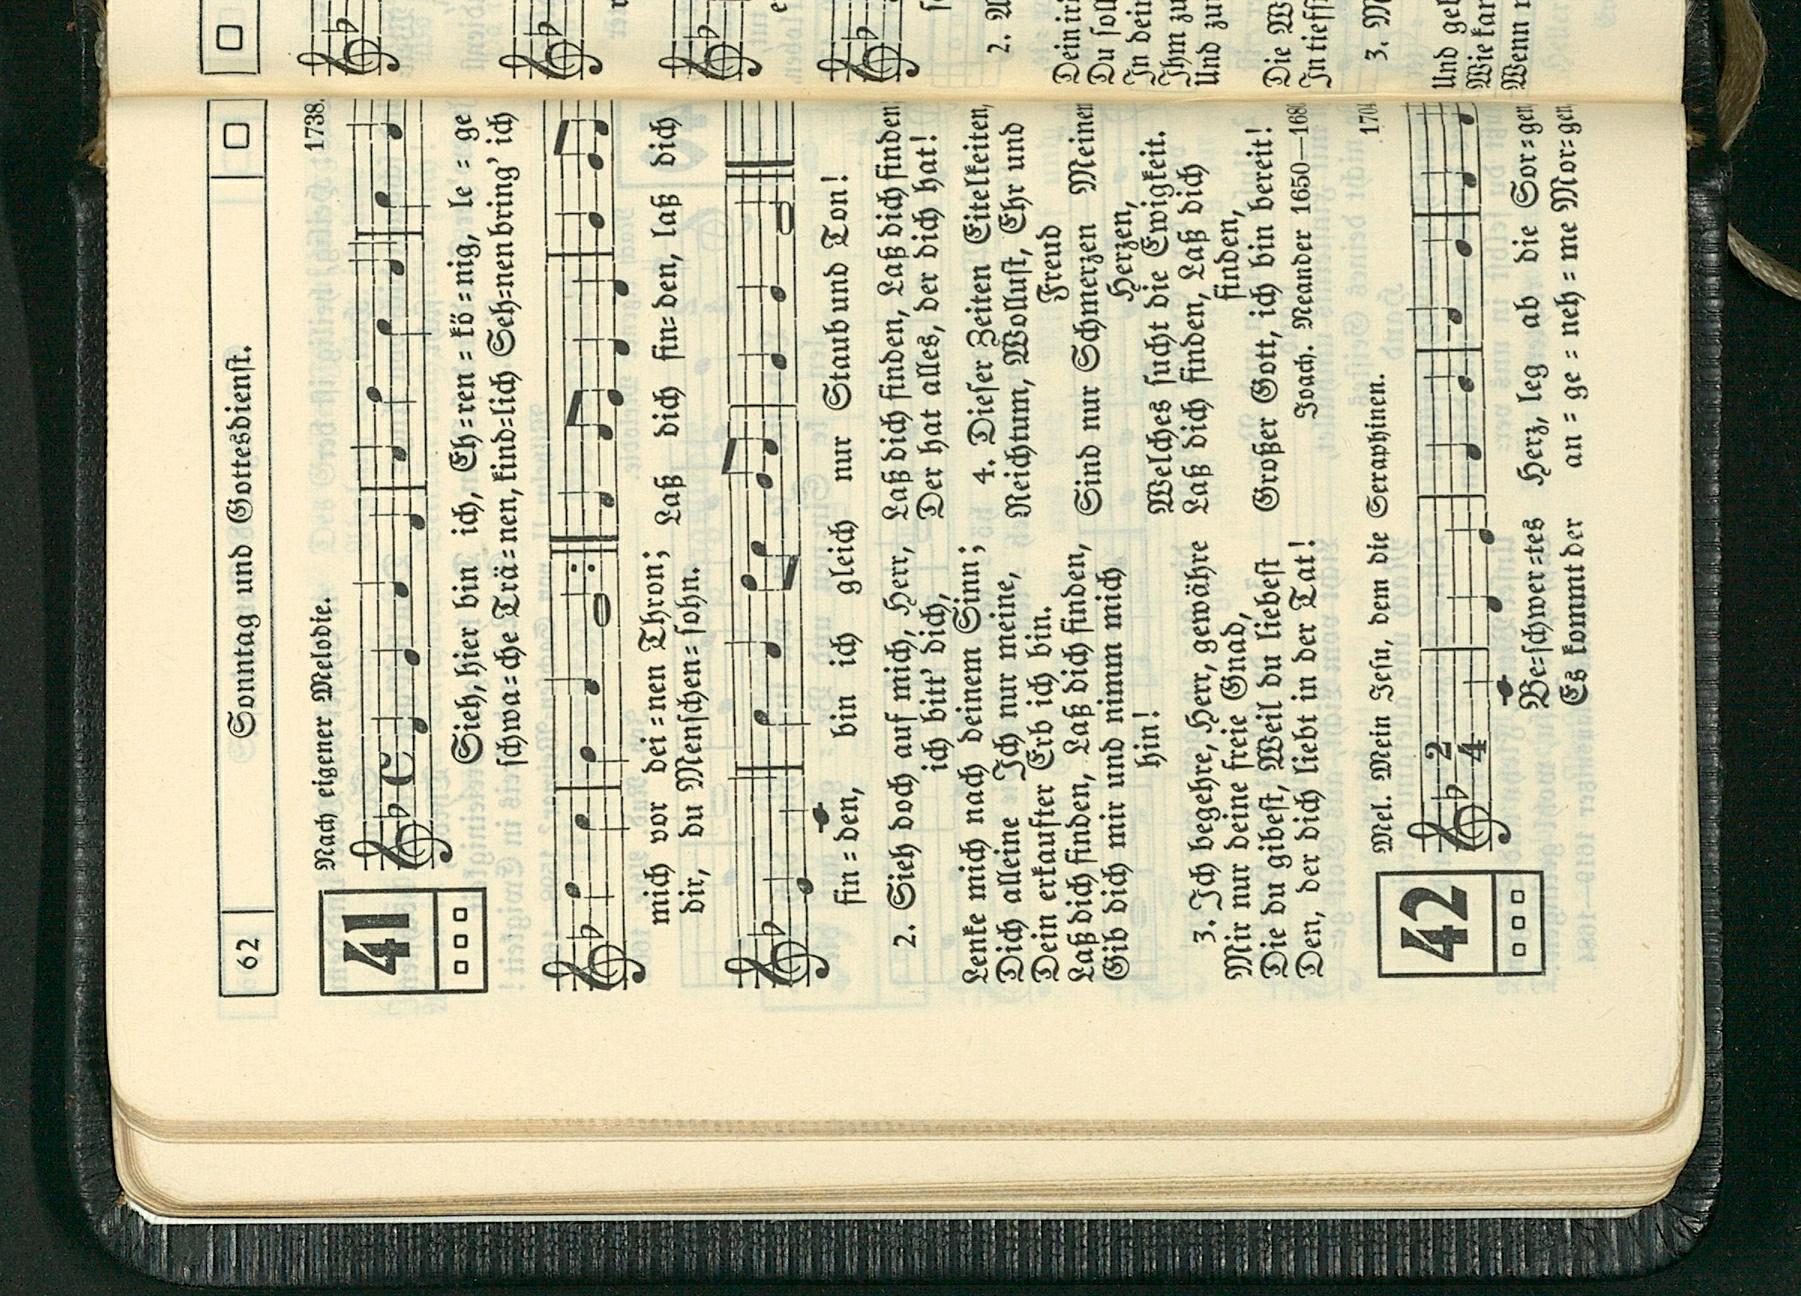 62
Sonntag und Gottesdienst.
41
Nach eigener Melodie.
1738.
Sieh, hier bin ich, Eh=ren = kö=nig, le = ge
schwa=che Trä=nen, kind=lich Seh=nen bring' ich
mich vor dei =nen Thron; Laß dich fin=den, laß dich
dir, du Menschen= sohn.
fin = den, bin ich gleich nur Staub und Ton!
2. Sieh doch auf mich, Herr,
ich bitt' dich,
Lenke mich nach deinem Sinn;
Dich alleine Ich nur meine,
Dein erkaufter Erb ich bin.
Laß dich finden, Laß dich finden,
Gib dich mir und nimm mich
hin!
3. Ich begehre, Herr, gewähre
Mir nur deine freie Gnad,
Die du gibest, Weil du liebest
Den, der dich liebt in der Tat!
Laß dich finden, Laß dich finden
Der hat alles, der dich hat!
4. Dieser Zeiten Eitelkeiten,
Reichtum, Wollust, Ehr und
Freud
Sind nur Schmerzen Meinem
Herzen,
Welches sucht die Ewigkeit.
Laß dich finden, Laß dich
finden,
Großer Gott, ich bin bereit!
Joach. Neander 1650—168
42
Mel. Mein Jesu, dem die Seraphinen.
170
2
4
Be=schwer=tes Herz, leg ab die Sor=gen
Es kommt der an = ge = neh = me Mor=gen
2.
Du sol
In dein
Ihm zu
Und zu
Die W
In tieff
3. M
Und gel
Wie kan
Wenn